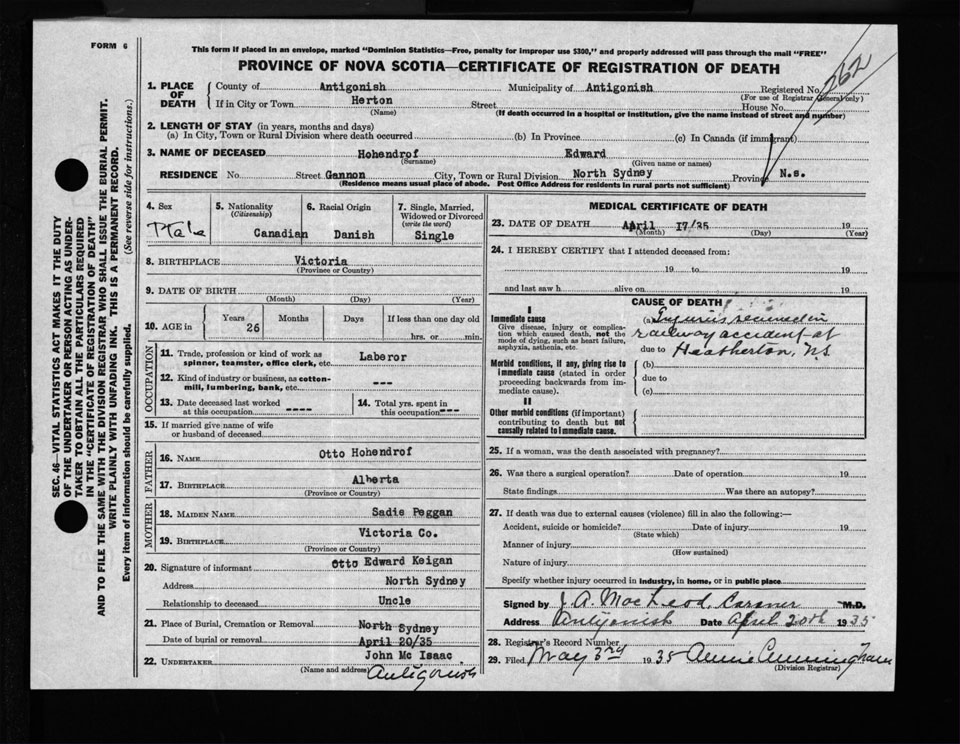 FORM 6
This form if placed in an envelope, marked "Dominion Statistics—Free, penalty for improper use $300," and properly addressed will pass through the mail "FREE"
PROVINCE OF NOVA SCOTIA—CERTIFICATE OF REGISTRATION OF DEATH
262
SEC. 46—VITAL STATISTICS ACT MAKES IT THE DUTY
OF THE UNDERTAKER OR PERSON ACTING AS UNDER-
TAKER TO OBTAIN ALL THE PARTICULARS REQUIRED
IN THE "CERTIFICATE OF REGISTRATION OF DEATH"
AND TO FILE THE SAME WITH THE DIVISION REGISTRAR WHO SHALL ISSUE THE BURIAL PERMIT.
WRITE PLAINLY WITH UNFADING INK. THIS IS A PERMANENT RECORD.
Every item of information should be carefully supplied. (See reverse side for instructions.)
1. PLACE OF DEATH
County of Antigonish Municipality of Antigonish Registered No.
(For use of Registrar General only)
If in City or Town Herton Street House No.
(Name) (If death occurred in a hospital or institution, give the name instead of street and number)
2. LENGTH OF STAY (in years, months and days)
(a) In City, Town or Rural Division where death occurred (b) In Province (c) In Canada (if immigrant)
3. NAME OF DECEASED Hohendrof Edward
(Surname) (Given name or names)
RESIDENCE No. Street Gannon City, Town or Rural Division North Sydney Province N.s.
(Residence means usual place of abode. Post Office Address for residents in rural parts not sufficient)
4. Sex 5. Nationality (Citizenship) 6. Racial Origin 7. Single, Married, Widowed or Divorced (write the word)
Male Canadian Danish Single
8. BIRTHPLACE Victoria
(Province or Country)
9. DATE OF BIRTH
(Month) (Day) (Year)
10. AGE in Years 26 Months Days If less than one day old
hrs. or min.
OCCUPATION
11. Trade, profession or kind of work as spinner, teamster, office clerk, etc. Laberor
12. Kind of industry or business, as cotton-mill, lumbering, bank, etc. ---
13. Date deceased last worked at this occupation ---- 14. Total yrs. spent in this occupation ---
15. If married give name of wife or husband of deceased
FATHER
16. NAME Otto Hohendrof
17. BIRTHPLACE Alberta
(Province or Country)
MOTHER
18. MAIDEN NAME Sadie Peggan
19. BIRTHPLACE Victoria Co.
(Province or Country)
20. Signature of informant Otto Edward Keigan
Address North Sydney
Relationship to deceased Uncle
21. Place of Burial, Cremation or Removal North Sydney
Date of burial or removal April 20/35
22. UNDERTAKER John Mc Isaac
(Name and address) Antigonish
MEDICAL CERTIFICATE OF DEATH
23. DATE OF DEATH April 17/35 19
(Month) (Day) (Year)
24. I HEREBY CERTIFY that I attended deceased from:
19 to 19
and last saw h alive on 19
CAUSE OF DEATH
I
Immediate cause
Give disease, injury or complication which caused death, not the mode of dying, such as heart failure, asphyxia, asthenia, etc.
(a) Injuries received in
railway accident at
due to Heatherton, N.S
Morbid conditions, if any, giving rise to immediate cause (stated in order proceeding backwards from immediate cause).
(b)
due to
(c)
II
Other morbid conditions (if important) contributing to death but not causally related to immediate cause.
25. If a woman, was the death associated with pregnancy?
26. Was there a surgical operation? Date of operation 19
State findings Was there an autopsy?
27. If death was due to external causes (violence) fill in also the following:—
Accident, suicide or homicide? Date of injury 19
(State which)
Manner of injury
(How sustained)
Nature of injury
Specify whether injury occurred in industry, in home, or in public place
Signed by J. A. MacLeod, Coroner M.D.
Address Antigonish Date April 20th 1935
28. Registrar's Record Number
29. Filed May 3rd 1935 Annie Cunningham
(Division Registrar)